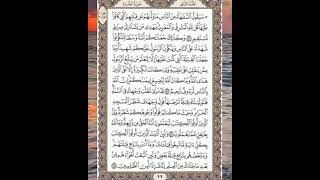 سَيَقُولُ ٱلسُّفَهَآءُ مِنَ ٱلنَّاسِ مَا وَلَّىٰهُمْ عَن قِبْلَتِهِمُ ٱلَّتِى كَانُوا۟
عَلَيْهَا قُل لِّلَّهِ ٱلْمَشْرِقُ وَٱلْمَغْرِبُ يَهْدِى مَن يَشَآءُ إِلَىٰ صِرَٰطٍ
مُّسْتَقِيمٍ ١٤٢ وَكَذَٰلِكَ جَعَلْنَٰكُمْ أُمَّةً وَسَطًا لِّتَكُونُوا۟
شُهَدَآءَ عَلَى ٱلنَّاسِ وَيَكُونَ ٱلرَّسُولُ عَلَيْكُمْ شَهِيدًا وَمَا
جَعَلْنَا ٱلْقِبْلَةَ ٱلَّتِى كُنتَ عَلَيْهَآ إِلَّا لِنَعْلَمَ مَن يَتَّبِعُ ٱلرَّسُولَ
مِمَّن يَنقَلِبُ عَلَىٰ عَقِبَيْهِ وَإِن كَانَتْ لَكَبِيرَةً إِلَّا عَلَى ٱلَّذِينَ
هَدَى ٱللَّهُ وَمَا كَانَ ٱللَّهُ لِيُضِيعَ إِيمَٰنَكُمْ إِنَّ ٱللَّهَ
بِٱلنَّاسِ لَرَءُوفٌ رَّحِيمٌ ١٤٣ قَدْ نَرَىٰ تَقَلُّبَ وَجْهِكَ فِى
ٱلسَّمَآءِ فَلَنُوَلِّيَنَّكَ قِبْلَةً تَرْضَىٰهَا فَوَلِّ وَجْهَكَ شَطْرَ ٱلْمَسْجِدِ
ٱلْحَرَامِ وَحَيْثُ مَا كُنتُمْ فَوَلُّوا۟ وُجُوهَكُمْ شَطْرَهُۥ وَإِنَّ
ٱلَّذِينَ أُوتُوا۟ ٱلْكِتَٰبَ لَيَعْلَمُونَ أَنَّهُ ٱلْحَقُّ مِن رَّبِّهِمْ وَمَا ٱللَّهُ
بِغَٰفِلٍ عَمَّا يَعْمَلُونَ ١٤٤ وَلَئِنْ أَتَيْتَ ٱلَّذِينَ أُوتُوا۟ ٱلْكِتَٰبَ
بِكُلِّ ءَايَةٍ مَّا تَبِعُوا۟ قِبْلَتَكَ وَمَآ أَنتَ بِتَابِعٍ قِبْلَتَهُمْ
وَمَا بَعْضُهُم بِتَابِعٍ قِبْلَةَ بَعْضٍ وَلَئِنِ ٱتَّبَعْتَ أَهْوَآءَهُم مِّنۢ
بَعْدِ مَا جَآءَكَ مِنَ ٱلْعِلْمِ إِنَّكَ إِذًا لَّمِنَ ٱلظَّٰلِمِينَ ١٤٥
٢٢